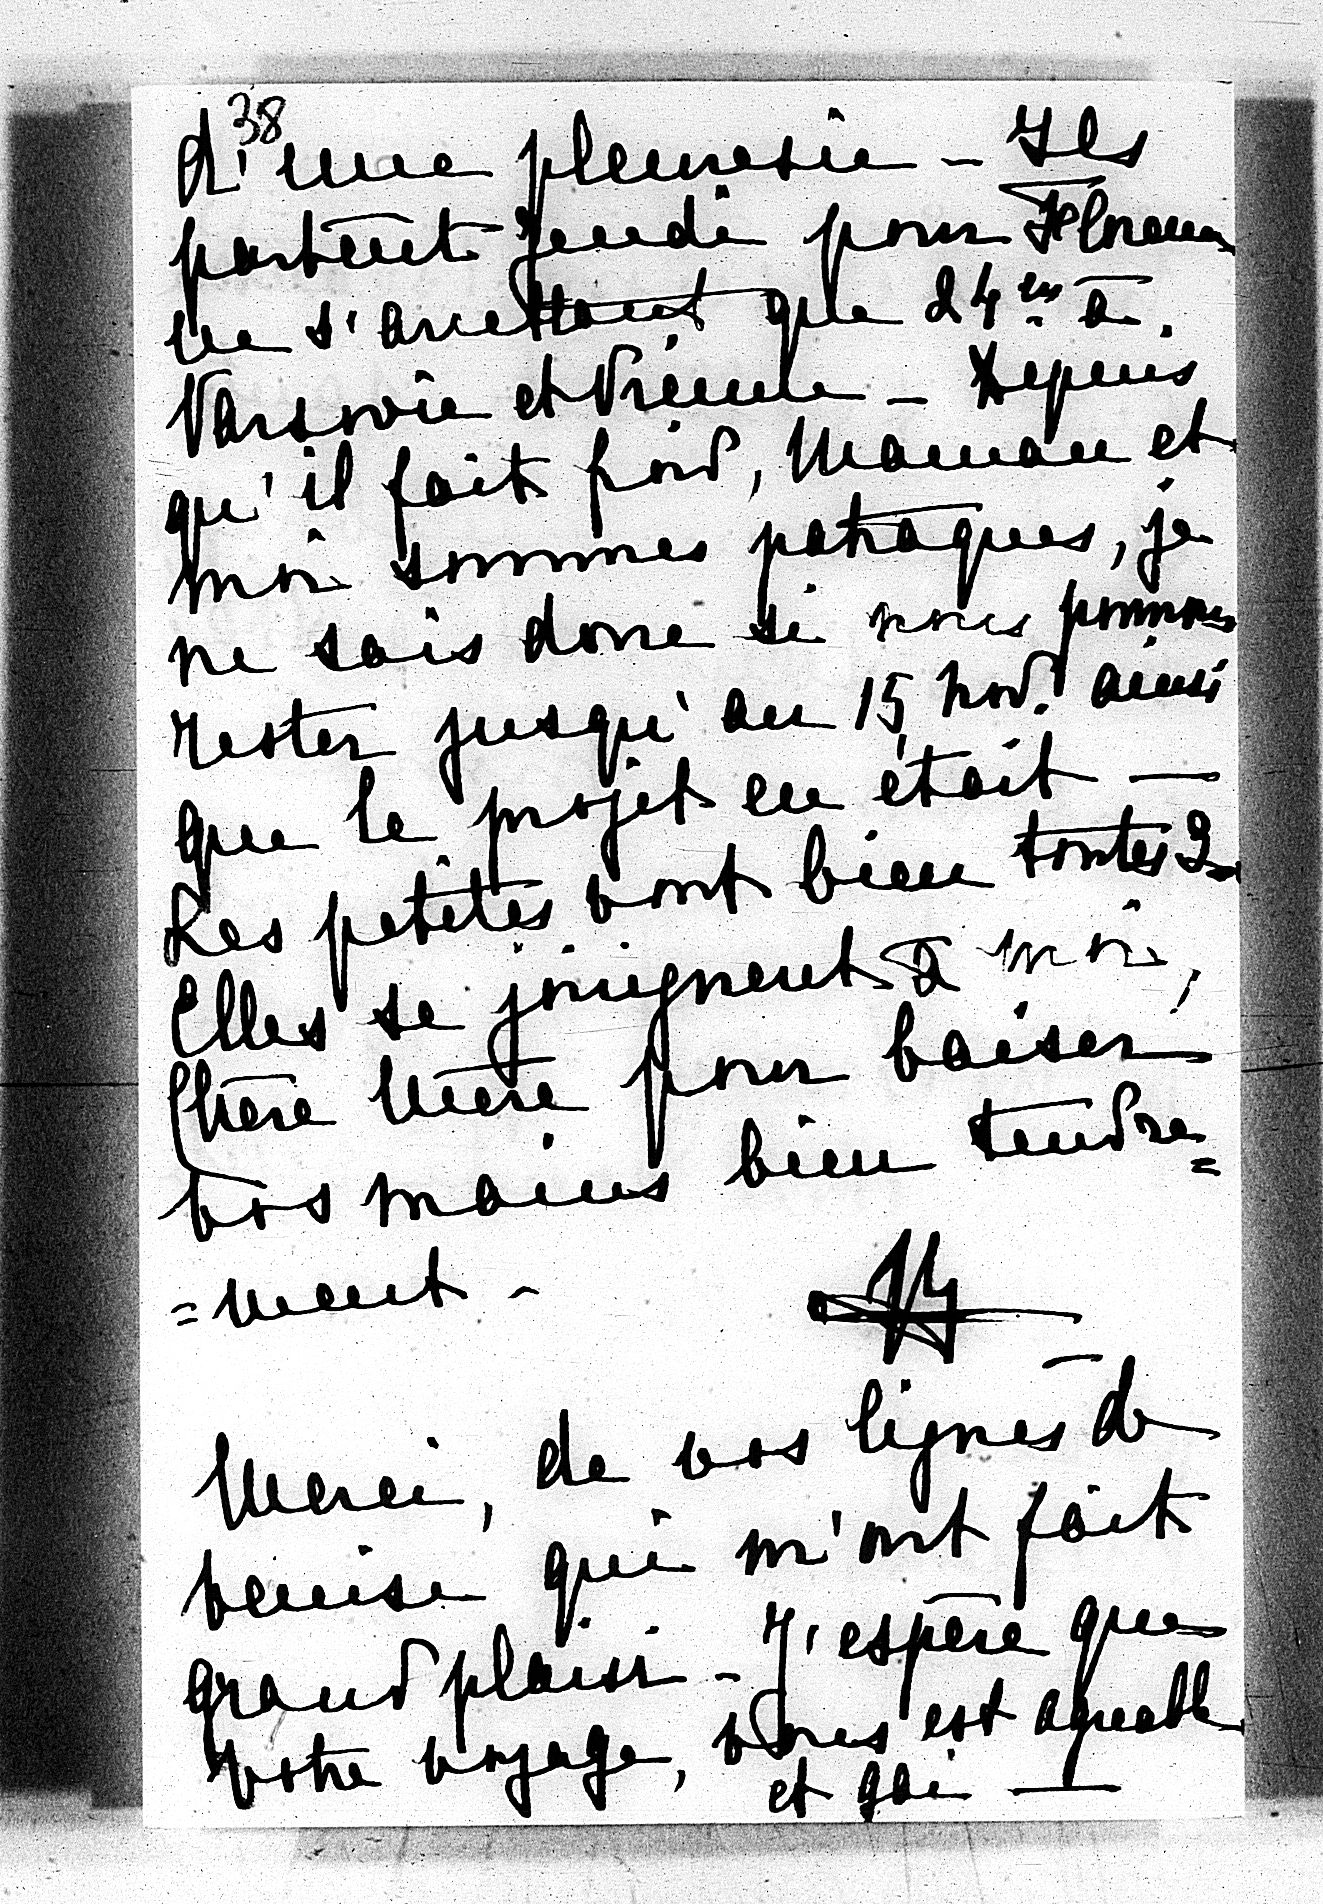 38
d'une pleuresie – Ils
partent jeudi pour Florence
ne s'arrettant que 24 à
Varsovie et Vienne – Depuis
qu'il fait froid, Maman et
moi sommes patraques, je
ne sais donc si nous pourrons
rester jusqu'au 15 nov. ainsi
que le projet en était —
Les petites vont bien toutes 2
Elles se joignent à moi,
Chère Mère pour baiser
vos mains bien tendre=
=ment –
Merci, de vos lignes de
Venise qui m'ont fait
grand plaisir – J'espère que
votre voyage, vous est agreable
et gai —